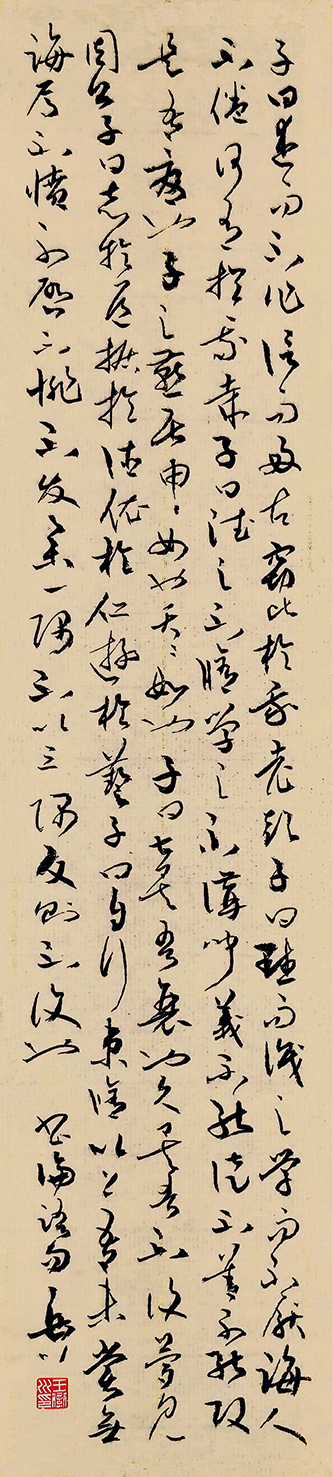 子曰述而不作信而好古竊比於我老彭子曰默而識之學而不厭誨人
不倦何有於我哉子曰德之不脩學之不講聞義不能徙不善不能改
是吾憂也子之燕居申〻如也夭〻如也子曰甚矣吾衰也久矣吾不復夢見
周公子曰志於道據於德依於仁遊於藝子曰自行束脩以上吾未嘗無
誨焉不憤不啟不悱不發舉一隅不以三隅反則不復也 書論語句